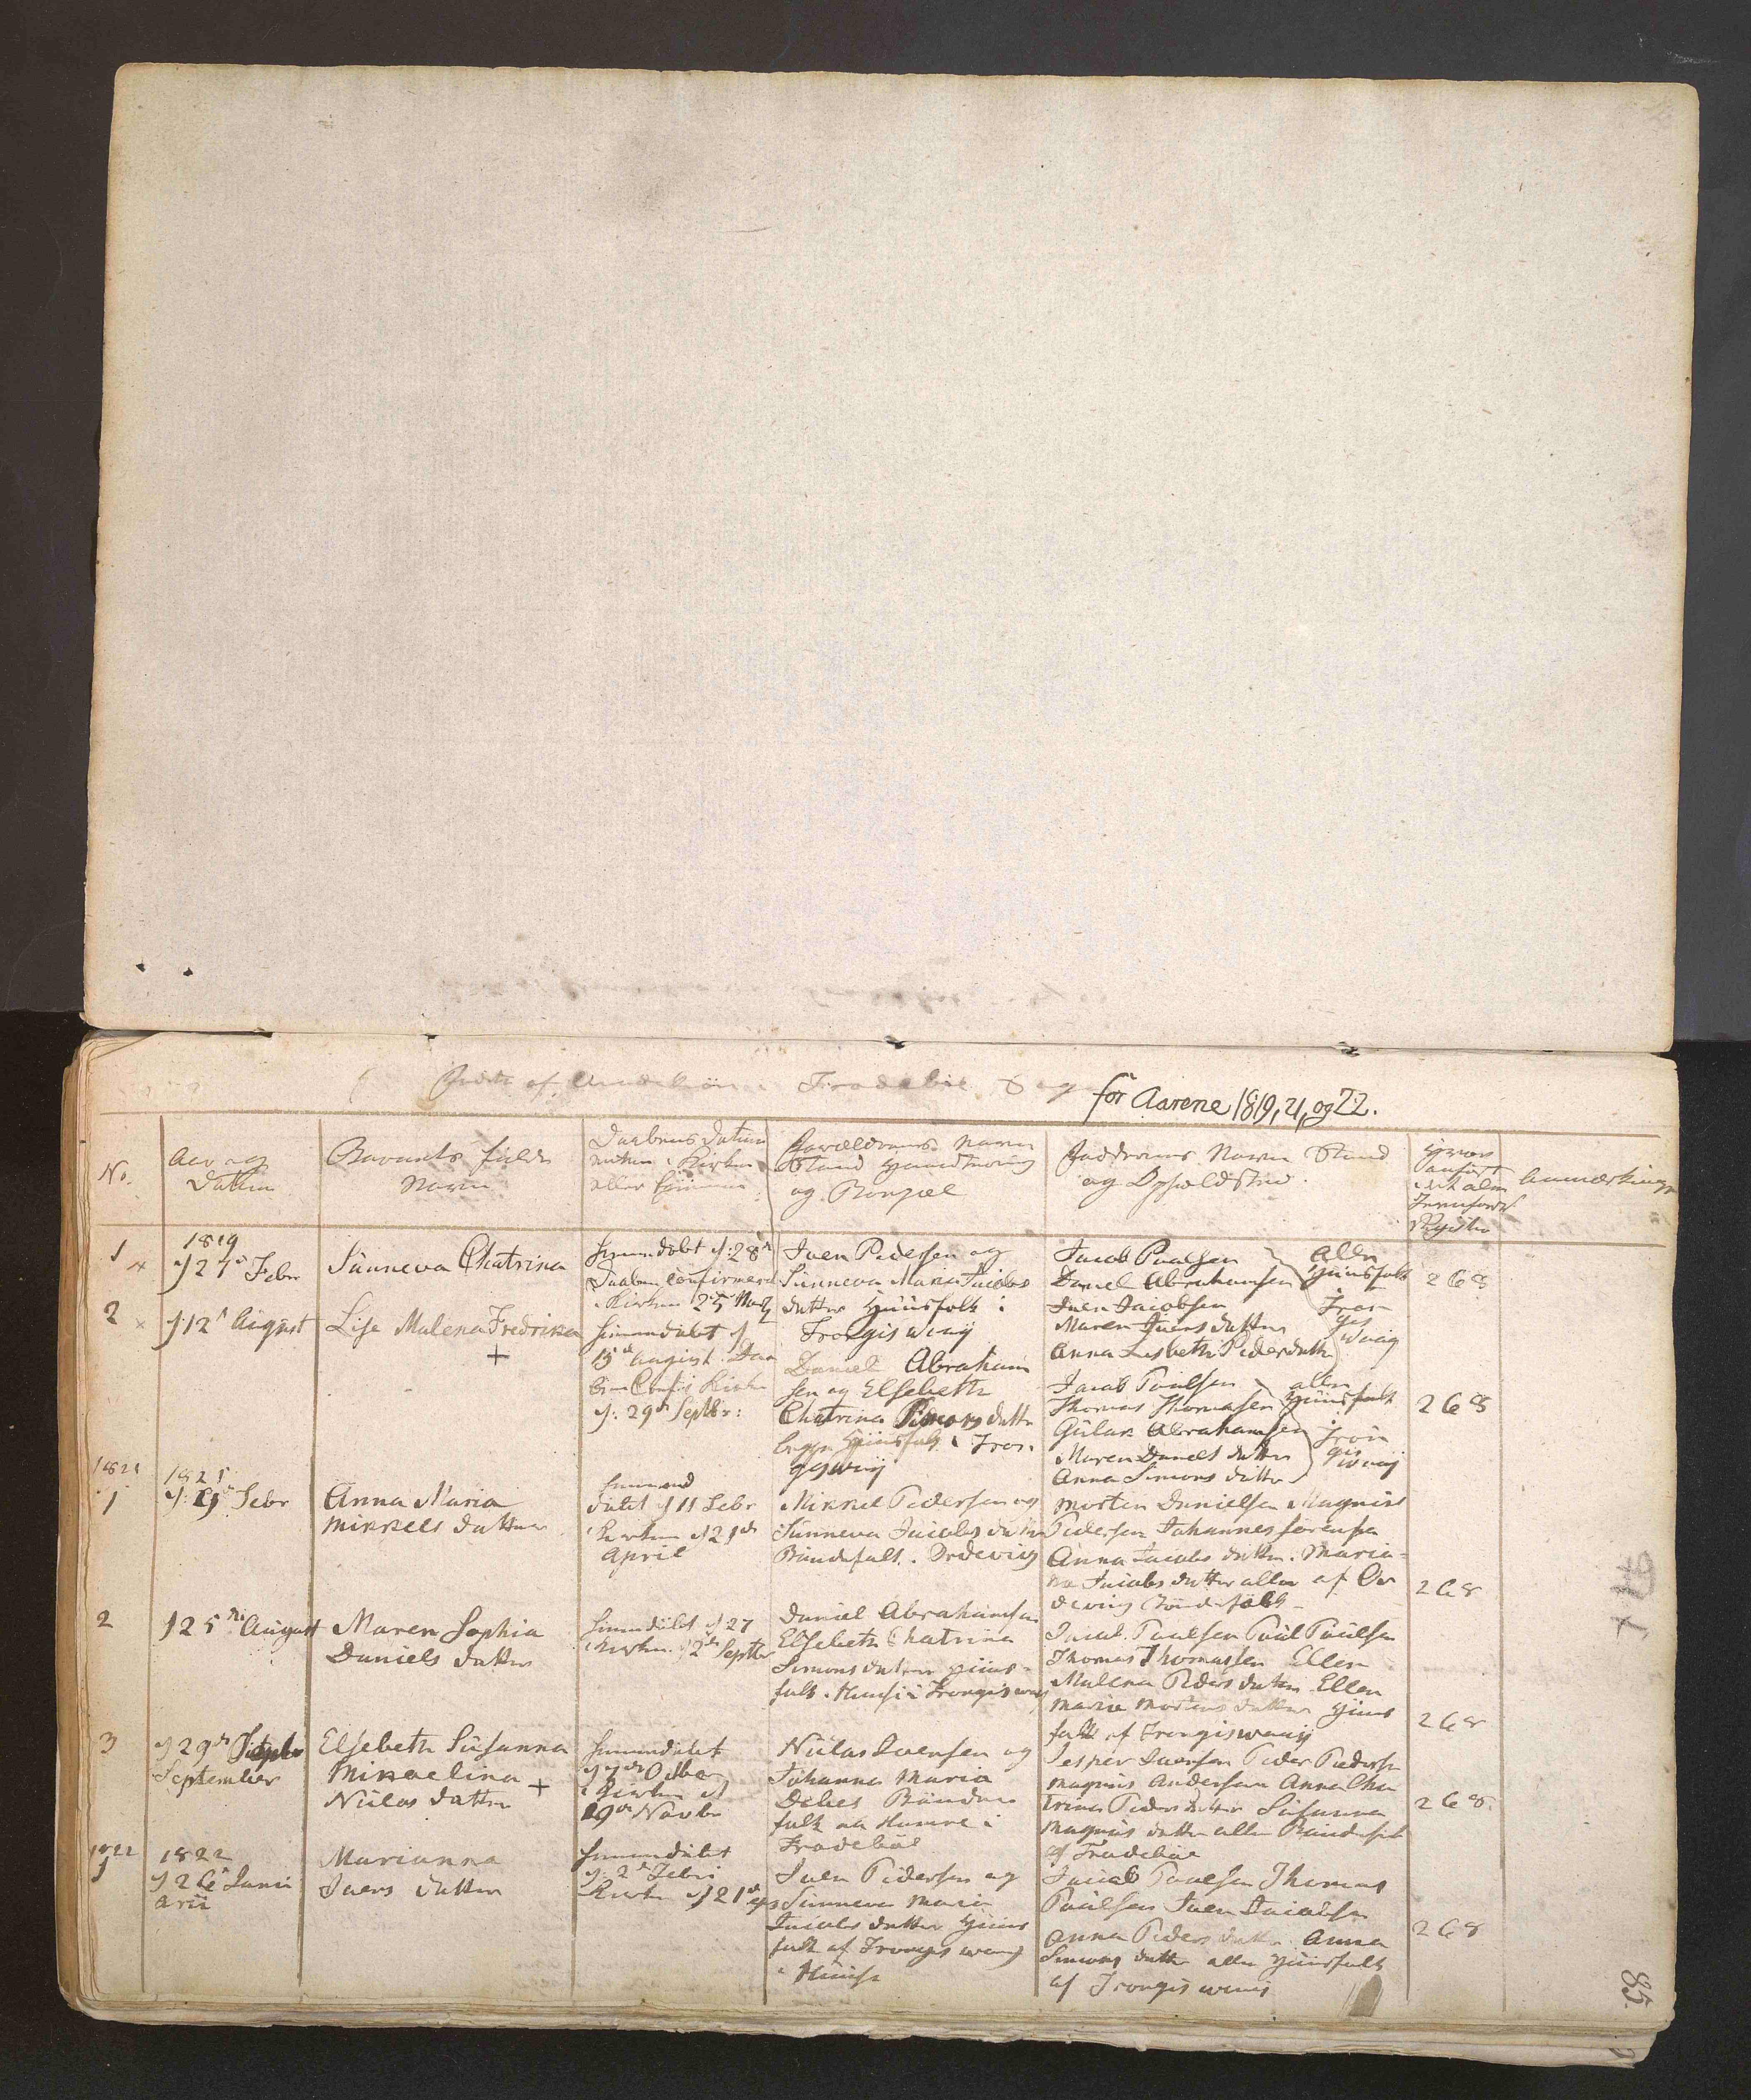 Fødte af Qvindekiøn i Frodebøe Sogn for Aarene 1819, 21, og 22.
No.
Aar og
Datum
Barnets fulde
Navn
Daabens Datum
enten i Kirken
eller hiemme
Forældrenes Navn
Stand Haandtering
og Bopæl
Faddrenes Navn Stand
og Opholdsted.
Hvor
anført
i det alm
Jevnførels
Register
Anmærkninger
1
1819
d 27 Febr
Sünneva Chatrina
hiemmedöbt d: 28
Daaben Confirmeret
i Kirken 25 Marty
Iven Pedersen og
Sünneva Maria Jacobs
datter Hüüsfolk i
Trongiswaag
Jacob Poulsen
Daniel Abrahamsen
Iven Jacobsen
Maren Ivers datter
Anna Lisbeth Peders datter
alle
Hüüsfolk
Tron
gis
waag
268
2
d 12 August
Lise Malena Fredrika
+
hiemmedöbt d
15 August. Daa
ben Conf i Kirken
d: 29 Septbr:
Daniel Abraham
sen og Elsebeth
Chatrina Simons datter
begge Hüüsfolk i Tron
giswaag
Jacob Poulsen
Thomas Thomasen
Gulak Abrahamsen
Maren Daniels datter
Anna Simons datter
alle
Hüüsfolk
Tron
gis
waag
268
1821
1
1821
d: Febr
Anna Maria
Mikkels datter
hiemme
döbt d 11 Febr
i Kirken d 21
April
Mikkel Pedersen og
Sünneva Jacobs datter
Böndefolk i Ordevig
Morten Danielsen Magnus
Pedersen Johannes Sörensen
Anna Jacobs datter. Maria-
na Jacobs datter alle af Or
devig Böndefolk
268
2
d 25 August
Maren Sophia
Daniels datter
hiemmedöbt d 27
i Kirken d 2 Septbr
Daniel Abrahamsen
Elsebeth Chatrina
Simons datter Hüüs-
folk i Trongiswaag
Jacob Poulsen Poul Poulsen
Thomas Thomassen Ellen
Malena Peders datter Ellen
Marie Mortens datter Hüüs
folk af Trongiswaag
268
3
d 29
September
Elsebeth Süsanna
Mikaelina +
Niclas datter
hiemmedöbt
d 7 Octber
i Kirken d
Novbr
Niclas Ivensen og
Johanna Maria
Debes Bönder
folk i
Frodeböe
Jesper Ivensen Peder Pedersen
Magnus Andersen Anna Cha
trina Peders datter Süsanna
Magnus datter alle Böndefolk
af Frodeböe
268
1822
1
1822
d 26 Janu
arii
Marianna
Ivers datter
hiemmedöbt
d: 2 Febr i
Kirken d 21
Iven Pedersen og
Sünneva Maria
Jacobs datter Hüüs
folk af Trongiswaag
Jacob Poulsen Thomas
Poulsen Iven Jacobsen
Anna Peders datter Anna
Simons datter alle Hüüsfolk
af Trongiswaag
268
85.